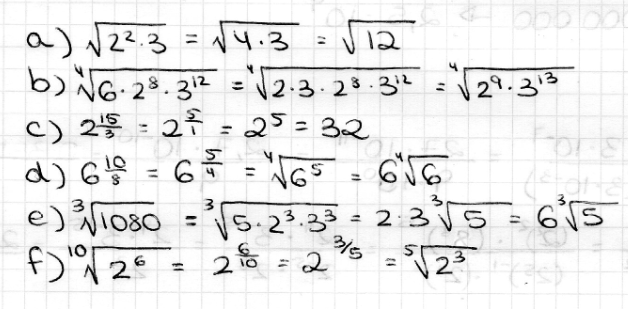 a) √(2²·3) = √(4·3) = √12
b) ⁴√(6·2⁸·3¹²) = ⁴√(2·3·2⁸·3¹²) = ⁴√(2⁹·3¹³)
c) 2^(15/3) = 2^(5/1) = 2⁵ = 32
d) 6^(10/8) = 6^(5/4) = ⁴√(6⁵) = 6⁴√6
e) ³√1080 = ³√(5·2³·3³) = 2·3³√5 = 6³√5
f) ¹⁰√(2⁶) = 2^(6/10) = 2^(3/5) = ⁵√(2³)